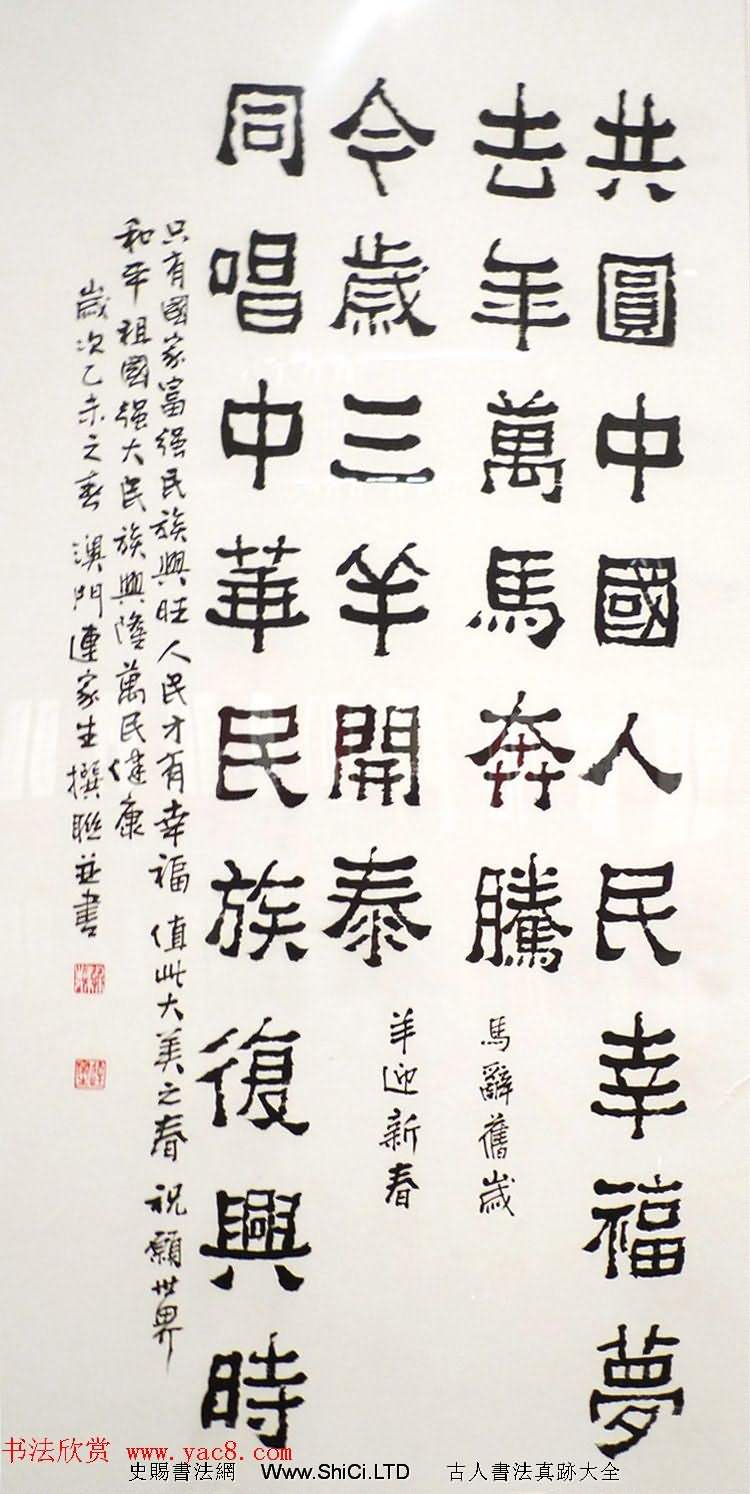 共圓中國人民幸福夢
去年萬馬奔騰
馬辭舊歲
今歲三羊開泰
羊迎新春
同唱中華民族復興時
只有國家富强民族興旺人民才有幸福值此大美之春祝願世界
和平祖國强大民族興隆萬民健康
歲次乙未之春澳門連家生撰聯並書
书法欣赏 www.yac8.com
史賜書法網 Www.ShiCi.LTD 古人書法真跡大全